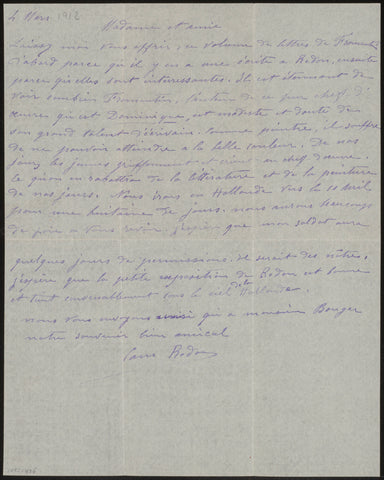 4 Mars 1912
Madame et amie
Laissez moi vous offrir, ce volume de lettres de Fromentin
d'abord parce qu'il y en a une écrite à Redon, ensuite
parce qu'elles sont intéressantes. Il est étonnant de
voir combien Fromentin, l'auteur de ce pur chef d'
œuvre qu'est Dominique, est modeste et doute de
son grand talent d'écrivain. Comme peintre, il souffre
de ne pouvoir atteindre à la belle couleur. De nos
jours les jeunes griffonnent et crient au chef d'œuvre.
Le giron en rabattra de la littérature et de la peinture
de nos jours. Nous irons en Hollande vers le 10 avril
pour une huitaine de jours. nous aurons beaucoup
de joie à vous revoir. j'espère que mon soldat aura
quelques jours de permissions. il serait des nôtres.
j'espère que la petite exposition de Redon est bonne
et luit convenablement sous le ciel de la Hollande.
nous vous envoyons ainsi qu'à monsieur Bonger
notre souvenir bien amical
Redon